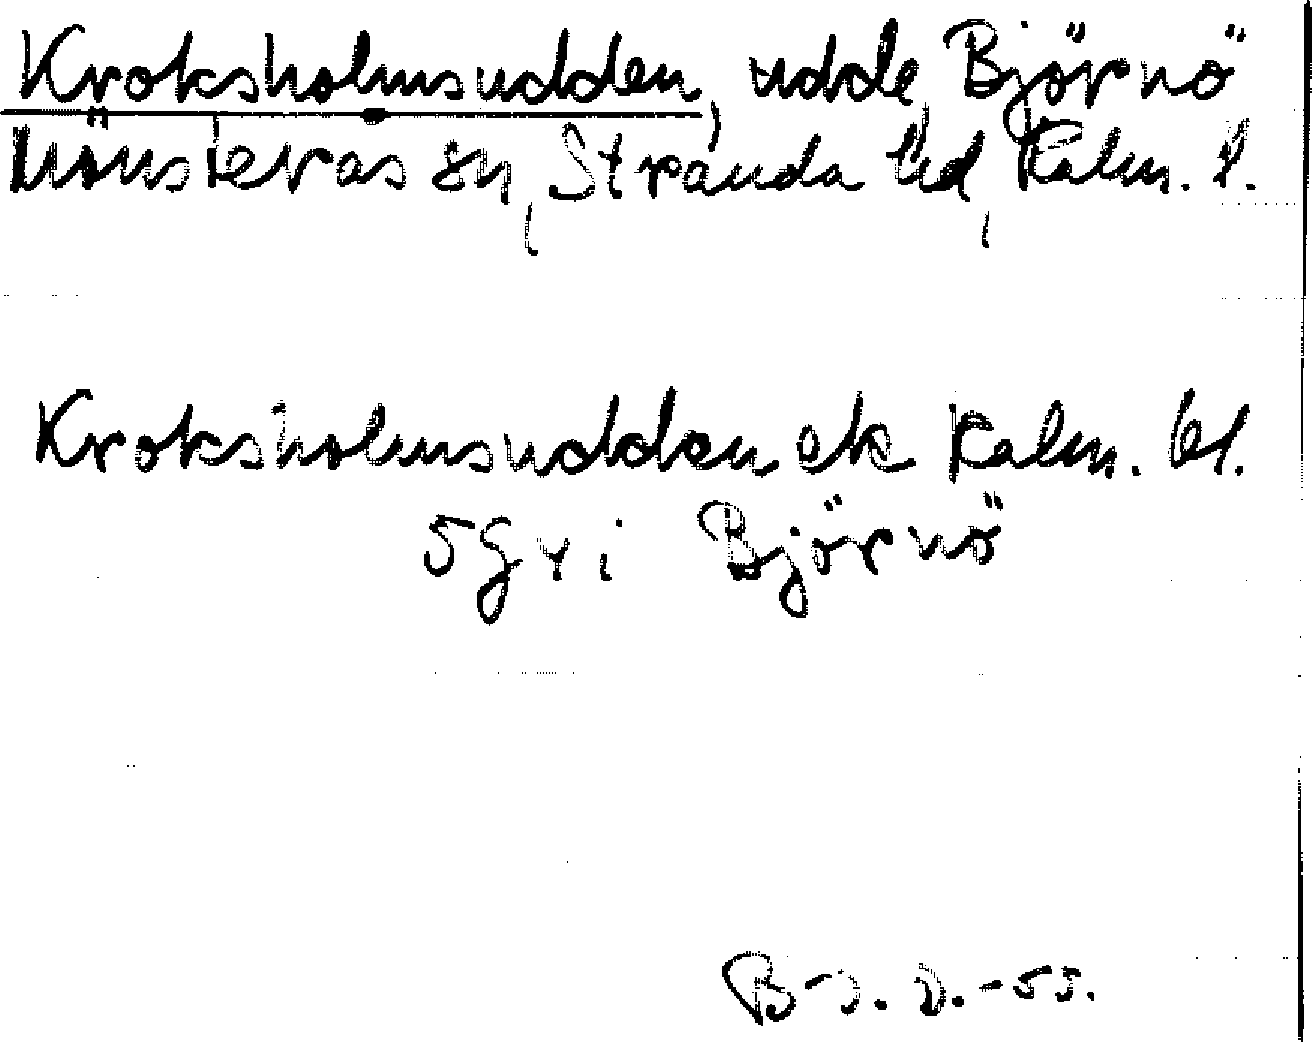 Kroksholmsudden, udde, Björnö
Mönsterås sn, Stranda hd, Kalm. l.
Kroksholmsudden ek Kalm. bl.
5G y i Björnö
B-J. D. -55.